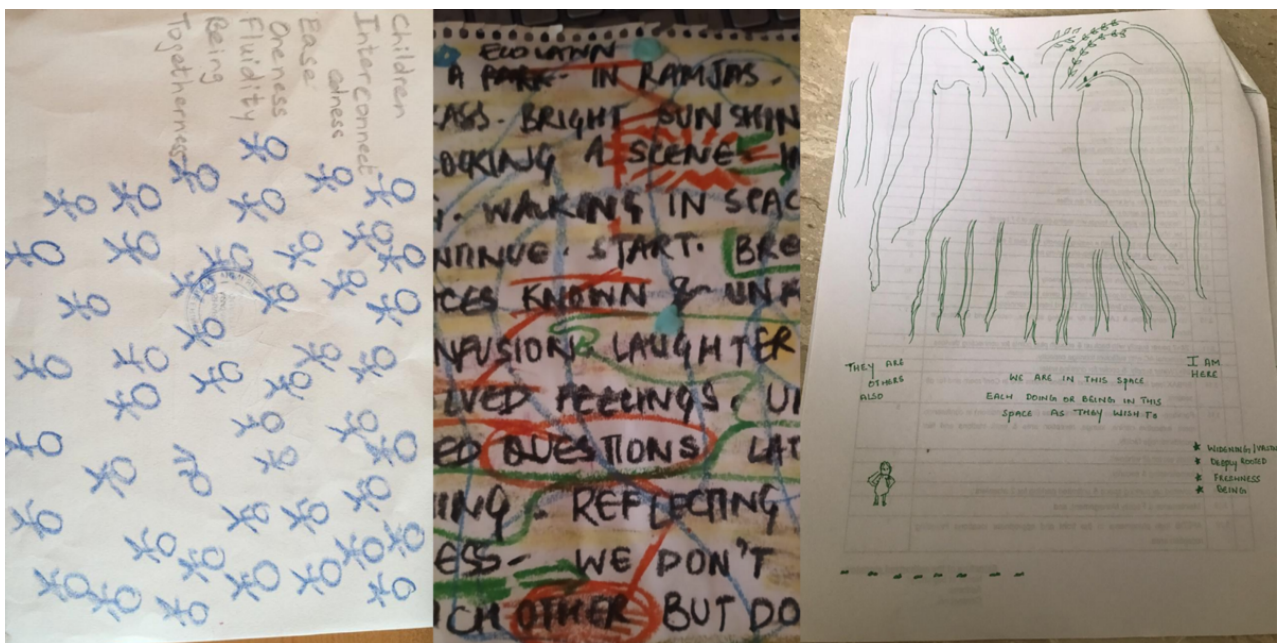 Children
Interconnect
edness
Ease
Oneness
Fluidity
Being
Togetherness
ECO LAWN
A PARK- IN RAMJAS.
ASS. BRIGHT SUNSHIN
OOKING A SCENE-
G. WALKING IN SPAC
NTINUE. START. BRE
ICES KNOWN & UNK
NFUSION & LAUGHTER
LVED FEELINGS. U
ED QUESTIONS LAT
ING. REFLECTING
ESS- WE DON'T
CH OTHER BUT DO
THEY ARE
OTHERS
ALSO
WE ARE IN THIS SPACE
EACH DOING OR BEING IN THIS
SPACE AS THEY WISH TO
I AM
HERE
* DEEPLY ROOTED
* FRESHNESS
* BEING